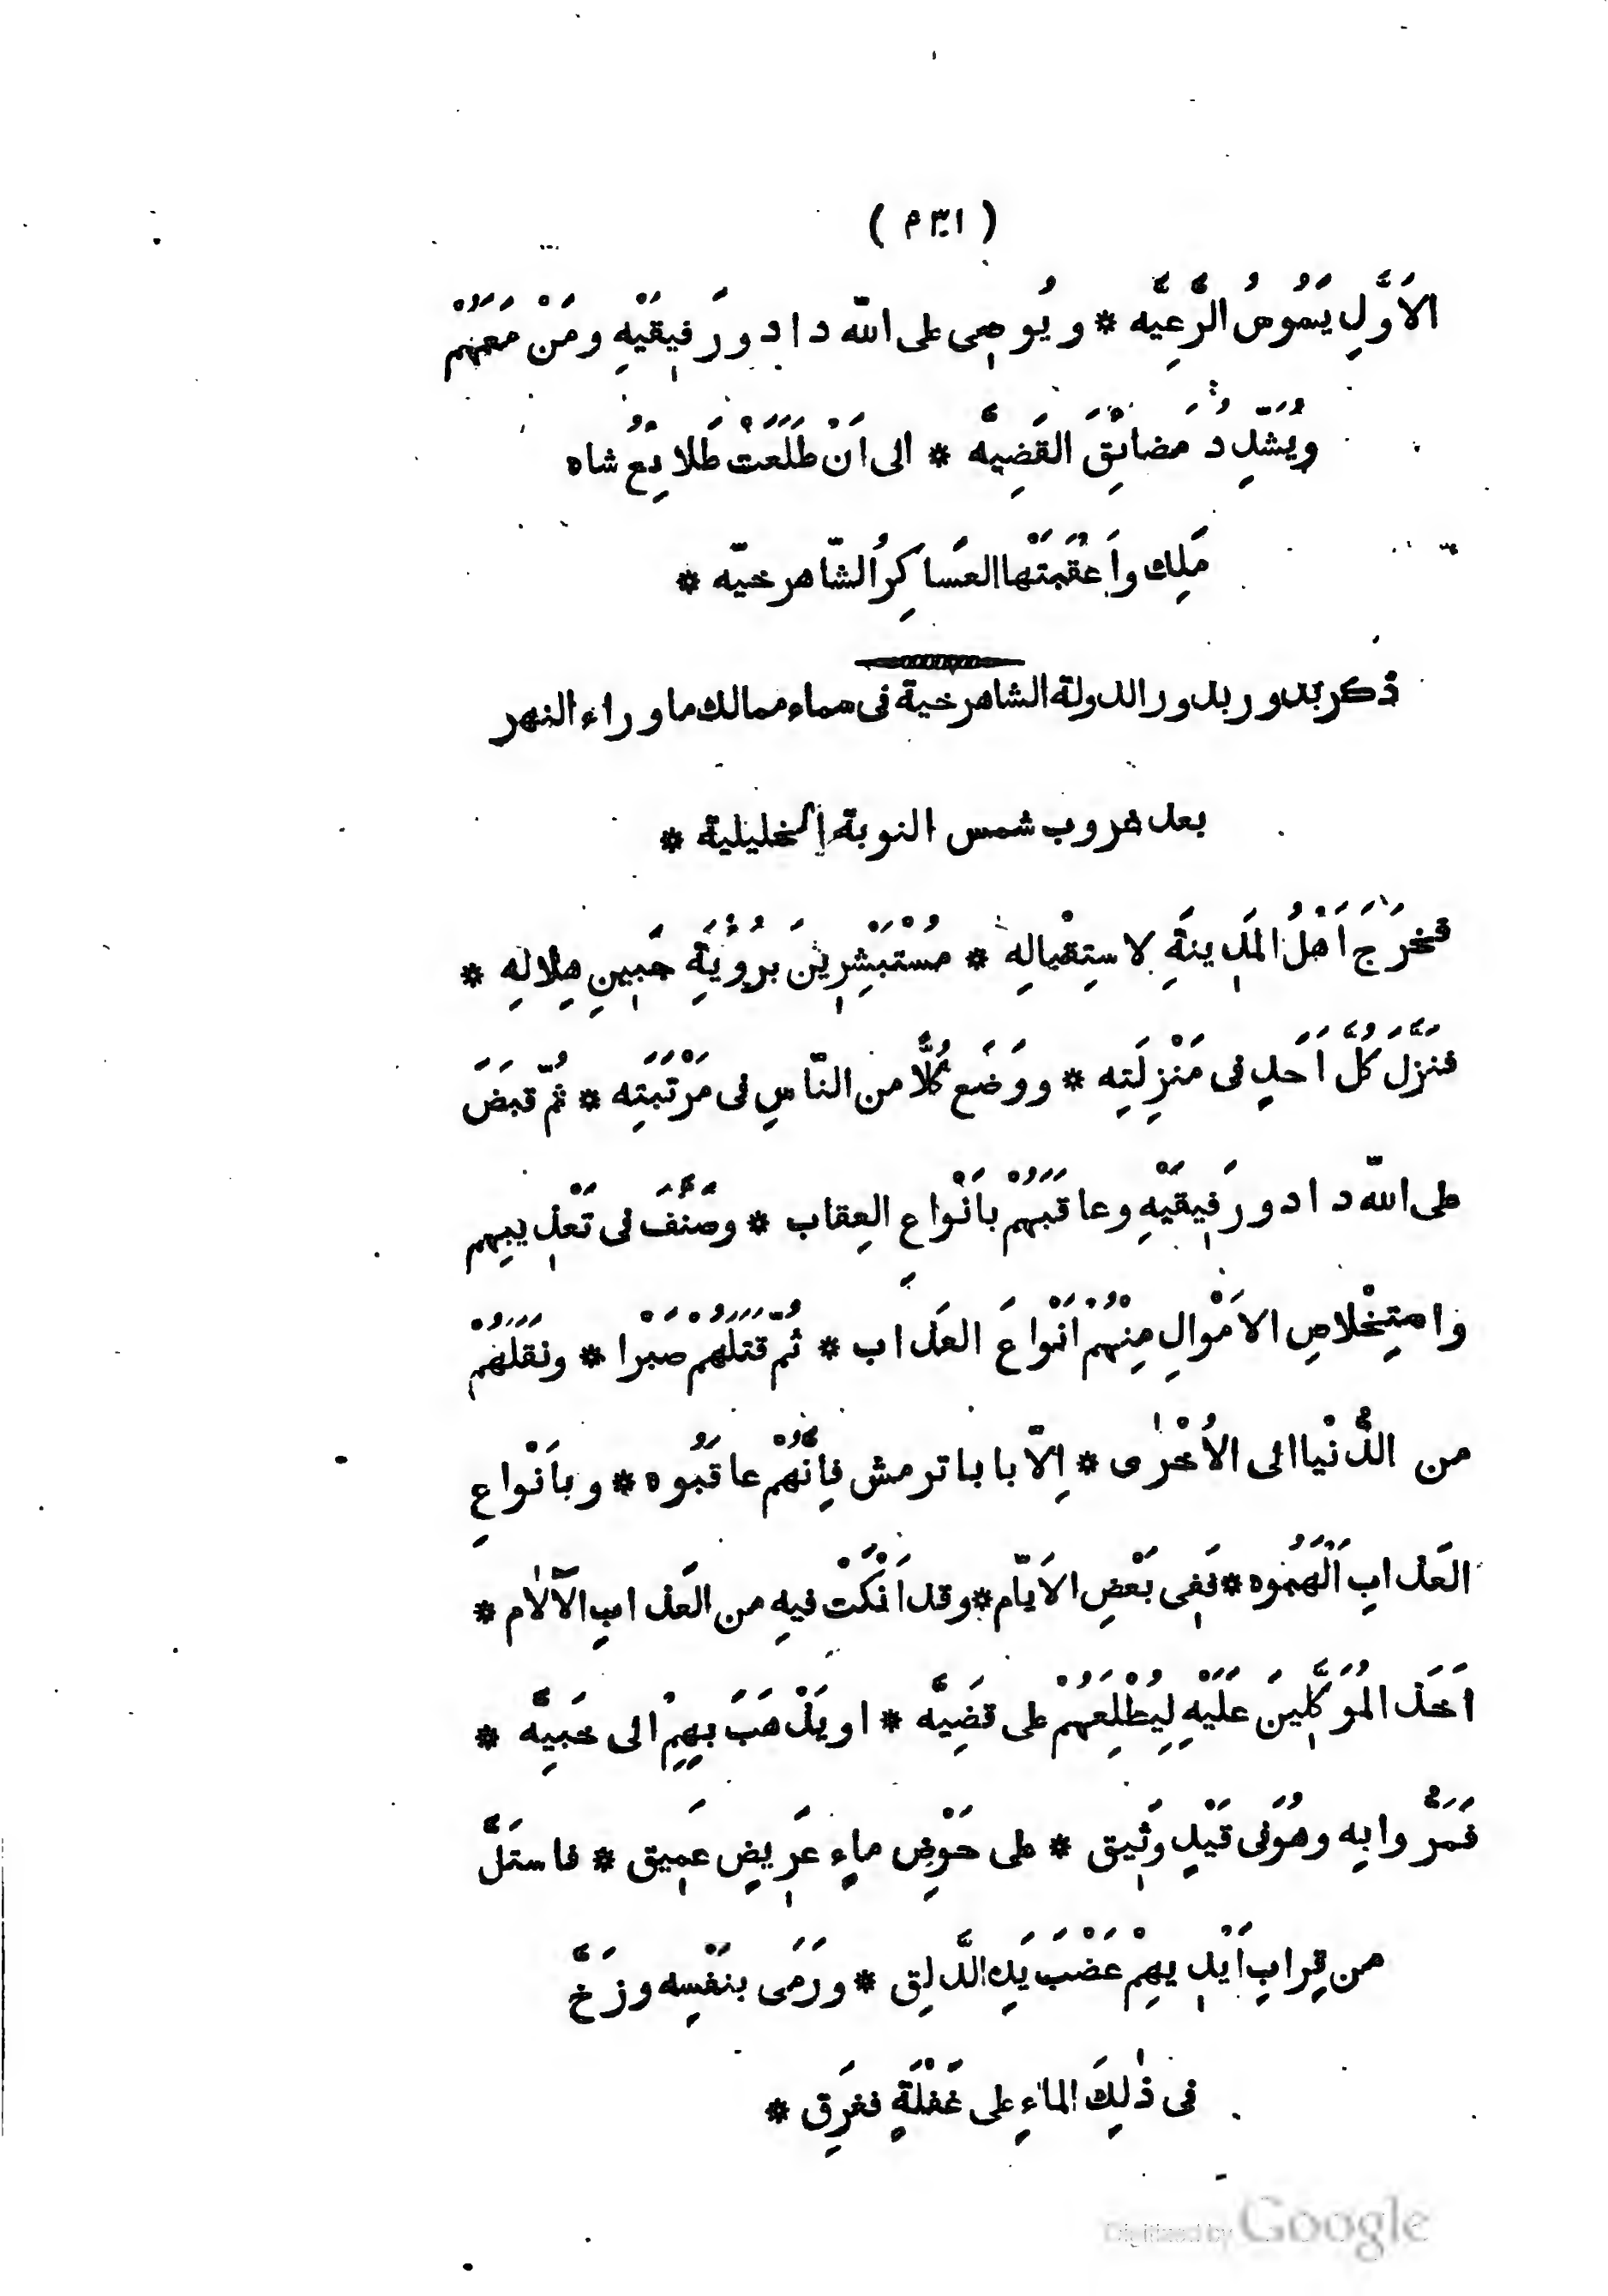 ( ٤٣١ )
الاَوَّلِ يَسُوسُ الرَّعِيَّه * و يُوصِى على اللّه داد ورَفِيقَيْهِ ومَنْ مَعَهُمْ
ويُشَدِّدُ مَضائِقَ القَضِيَّه * الى اَنْ طَلَعَتْ طَلائِعُ شاه
مَلِك واَعْقَبَتْها العَساكِرُ الشّاهرخيّه *
ذكر بدور بدور الدولة الشاهرخية فى سماء ممالك ما وراء النهر
بعد غروب شمس النوبة الخليلية *
فخَرَجَ اَهْلُ المَدِينَةِ لاستِقْبالِهِ * مُسْتَبْشِرِينَ برُؤْيَةِ جَبِينِ هِلالِهِ *
فنَزَّلَ كُلَّ اَحَدٍ فى مَنْزِلَتِه * ووَضَع كُلًّا من النّاسِ فى مَرْتَبَتِه * ثُمّ قبَضَ
على اللّه داد ورَفِيقَيْهِ وعاقَبَهُمْ باَنْواعِ العِقاب * وصَنَّفَ فى تَعْذِيبِهِم
واسْتِخْلاصِ الاَمْوالِ مِنْهُمْ اَنْواعَ العَذاب * ثُمّ قَتَلَهُمْ صَبْرا * ونَقَلَهُمْ
من الدُّنْيا الى الاُخْرٰى * اِلاّ بابا ترمش فاِنَّهُمْ عاقَبُوه * وباَنْواعِ
العَذابِ اَلْهَمُوه * فَفِى بَعْضِ الاَيّام * وقد اَنْكَتْ فيهِ من العَذابِ الآلام *
اَخَذَ المُوَكَّلِينَ عَلَيْهِ لِيُطْلِعَهُمْ على قَضِيَّه * او يَذْهَبَ بِهِمْ الى خَبِيَّه *
فَمَرُّوا بِه وهُوَفى قَيْدٍ وَثِيق * على حَوْضِ ماءٍ عَرِيضٍ عَمِيق * فاستَلَّ
من قِرابِ اَيْدِيهِمْ عَضْبَ يَدِه الذَّلِق * ورَمَى بنَفْسِه وزَخَّ
فى ذٰلِكَ الماءِ على غَفْلَةٍ فغَرِق *
Digitized by Google